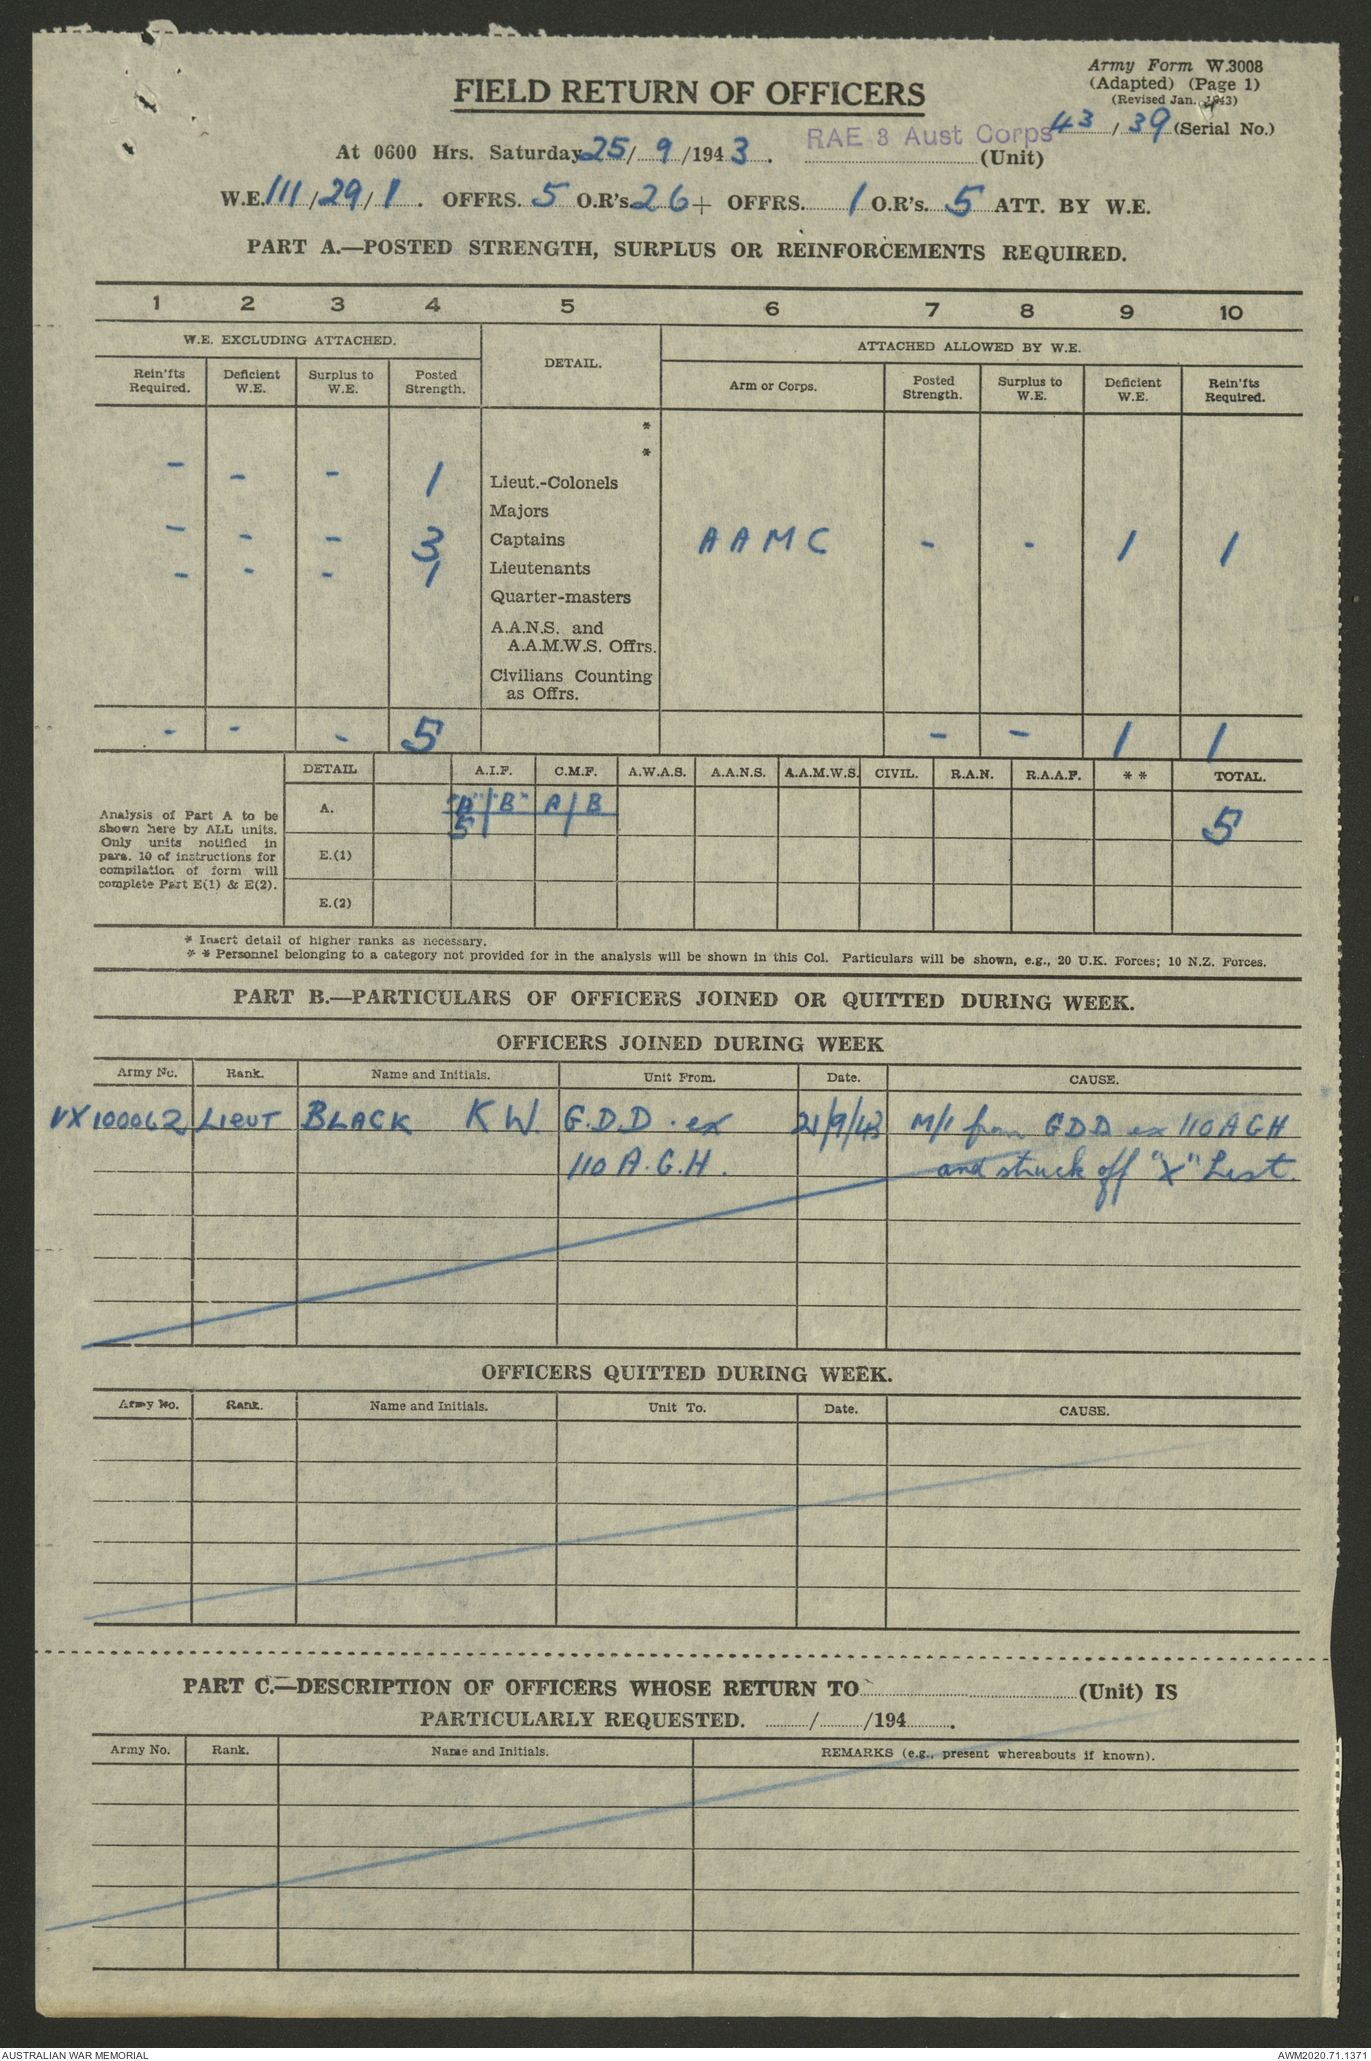 Army Form W.3008
(Adapted) (Page 1)
(Revised Jan. 1943)
FIELD RETURN OF OFFICERS
43 / 39 (Serial No.)
At 0600 Hrs. Saturday 25/ 9 /194 3 . RAE 3 Aust Corps (Unit)
W.E. 111 / 29 / 1 . OFFRS. 5 O.R's. 26 + OFFRS. 1 O.R's. 5 ATT. BY W.E.
PART A.—POSTED STRENGTH, SURPLUS OR REINFORCEMENTS REQUIRED.
1 2 3 4 5 6 7 8 9 10
W.E. EXCLUDING ATTACHED. DETAIL. ATTACHED ALLOWED BY W.E.
Rein'fts Required. Deficient W.E. Surplus to W.E. Posted Strength. Arm or Corps. Posted Strength. Surplus to W.E. Deficient W.E. Rein'fts Required.
*
*
- - - 1 Lieut.-Colonels
Majors
- - - 3 Captains A A M C - - 1 1
- - - 1 Lieutenants
Quarter-masters
A.A.N.S. and
A.A.M.W.S. Offrs.
Civilians Counting
as Offrs.
- - - 5 - - 1 1
DETAIL A.I.F. C.M.F. A.W.A.S. A.A.N.S. A.A.M.W.S. CIVIL. R.A.N. R.A.A.F. * * TOTAL.
Analysis of Part A to be
shown here by ALL units.
Only units notified in
para. 10 of instructions for
compilation of form will
complete Part E(1) & E(2).
A. "A" | "B" A | B
5 5
E.(1)
E.(2)
* Insert detail of higher ranks as necessary.
* * Personnel belonging to a category not provided for in the analysis will be shown in this Col. Particulars will be shown, e.g., 20 U.K. Forces; 10 N.Z. Forces.
PART B.—PARTICULARS OF OFFICERS JOINED OR QUITTED DURING WEEK.
OFFICERS JOINED DURING WEEK
Army No. Rank. Name and Initials. Unit From. Date. CAUSE.
VX100062 LIEUT BLACK K W. G.D.D. ex 21/9/43 M/I from GDD ex 110 AGH
110 A.G.H. and struck off "X" List.
OFFICERS QUITTED DURING WEEK.
Army No. Rank. Name and Initials. Unit To. Date. CAUSE.
PART C.—DESCRIPTION OF OFFICERS WHOSE RETURN TO (Unit) IS
PARTICULARLY REQUESTED. / /194 .
Army No. Rank. Name and Initials. REMARKS (e.g., present whereabouts if known).
AUSTRALIAN WAR MEMORIAL AWM2020.71.1371